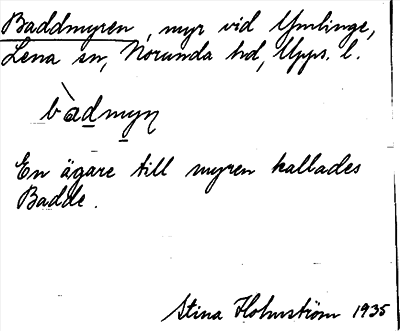 Baddmyren, myr vid Ymlinge,
Lena sn, Norunda hd, Upps. l.
bàdmyn
En ägare till myren kallades
Badde.
Stina Holmström 1935